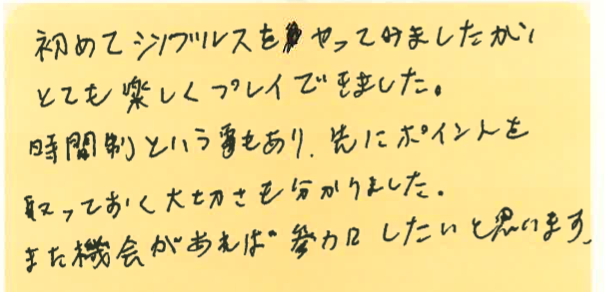 初めてシングルスをやってみましたが、
とても楽しくプレイできました。
時間制という事もあり、先にポイントを
取っておく大切さも分かりました。
また機会があれば参加したいと思います。